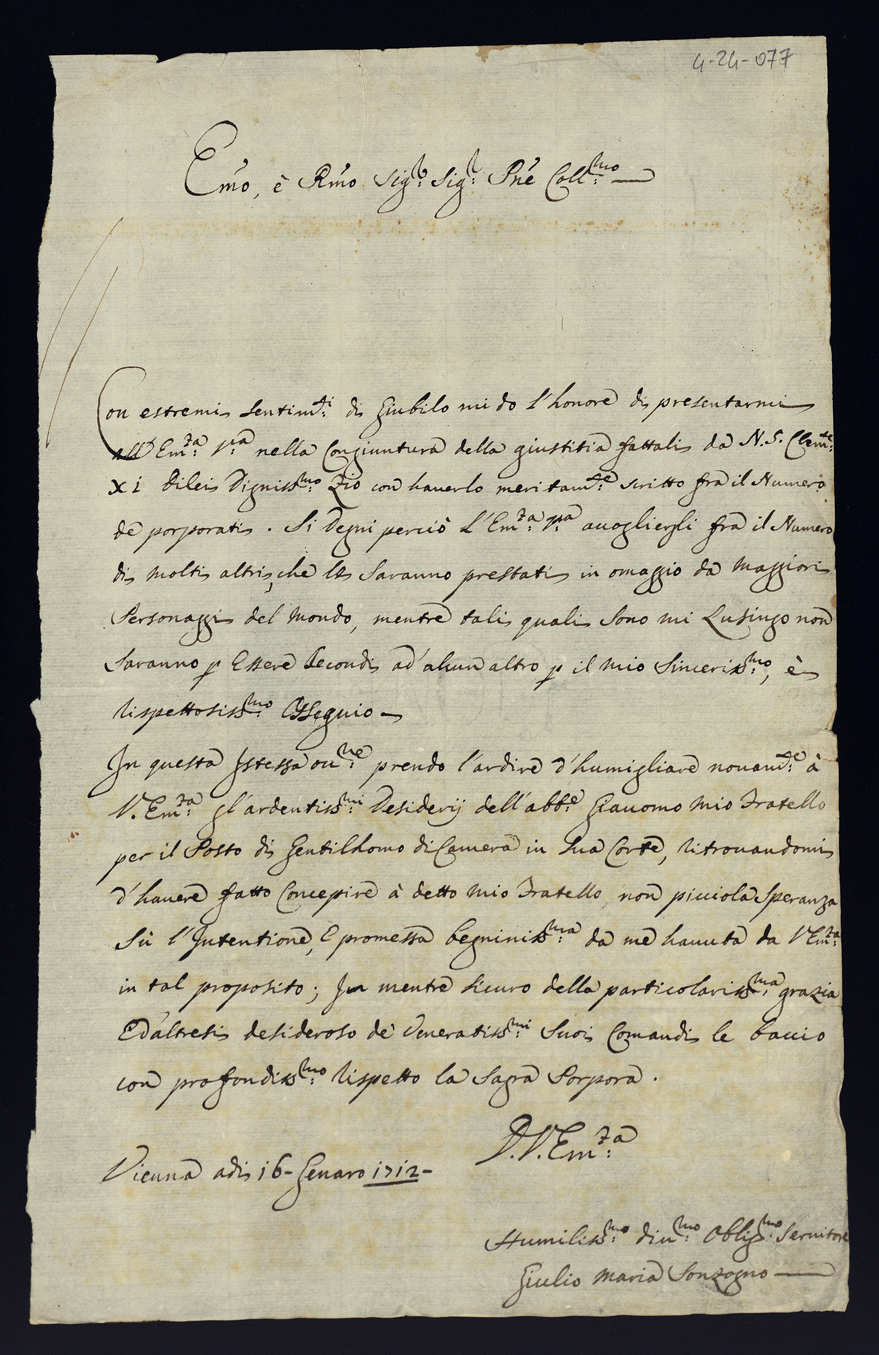 4-24-077
Em̃o, è Rm̃o Sig.r Sig.r Pñe Coll.mo
Con estremi sentim.ti di Giubilo mi do l'honore di presentarmi
all' Em.za V.ra nella Congiuntura della giustitia fattali da N.S. Clem.te
XI di lei Digniss.mo Zio con hauerlo meritam.te scritto fra il Numero
de porporati. Si degni perciò L'Em.za V.ra accogliergli fra il Numero
di molti altri, che le saranno prestati in omaggio da Maggiori
Personaggi del Mondo, mentre tali quali sono mi Lusingo non
saranno p Essere secondi ad' alcun altro p il mio sinceriss.mo, è
rispettosiss.mo Ossequio
In questa Istessa occ.ne prendo l'ardire d'humigliare nouam.te à
V. Em.za gl'ardentiss.mi Desiderij dell'abb.e Giacomo mio Fratello
per il Posto di Gentilhomo di Camera in sua Corte, ritrouandomi
d'hauere fatto Concepire à detto mio Fratello non picciola Speranza
sù l'Intentione, E promessa begniniss.ma da me hauuta da V. Em.za
in tal proposito; In mentre sicuro della particolariss.ma grazia
Ed altresi desideroso de Veneratiss.mi suoi Comandi le baccio
con profondiss.mo rispetto la Sagra Porpora.
D. V. Em.za
Vienna adi 16 - Genaro 1712 -
Humiliss.mo diu.mo Oblig.mo Seruitore
Giulio Maria Sonzogno